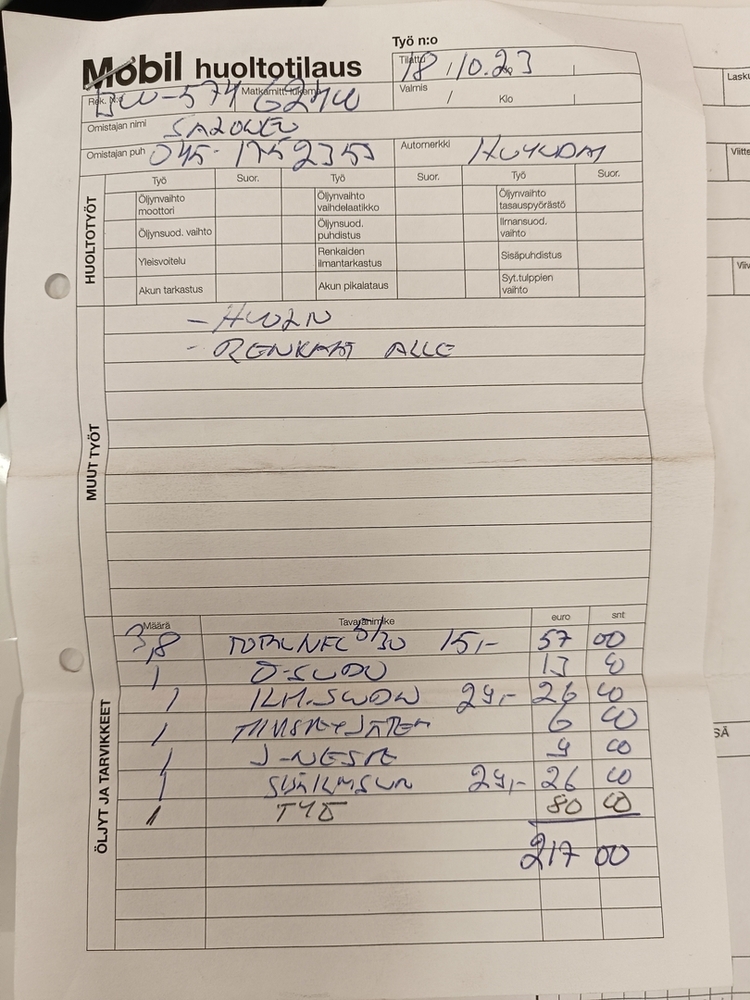 Työ n:o
Mobil huoltotilaus
Tilattu 18.10.23
Rek. N:o Matkamitt. lukema
Valmis / Klo
Omistajan nimi
Omistajan puh 045-1752355 Automerkki
HUOLTOTYÖT
Työ Suor. Työ Suor. Työ Suor.
Öljynvaihto moottori Öljynvaihto vaihdelaatikko Öljynvaihto tasauspyörästö
Öljynsuod. vaihto Öljynsuod. puhdistus Ilmansuod. vaihto
Yleisvoitelu Renkaiden ilmantarkastus Sisäpuhdistus
Akun tarkastus Akun pikalataus Syt.tulppien vaihto
MUUT TYÖT
- RENKAAT ALLE
ÖLJYT JA TARVIKKEET
Määrä Tavaranimike euro snt
3,8 5/30 15,- 57 00
1 Ö-SUOD 13 00
1 ILM.SUOD 29,- 26 00
1 6 00
1 J-NESTE 9 00
1 29,- 26 00
1 TYÖ 80 00
217 00
Lasku
Viitte
Viiv
SÄ